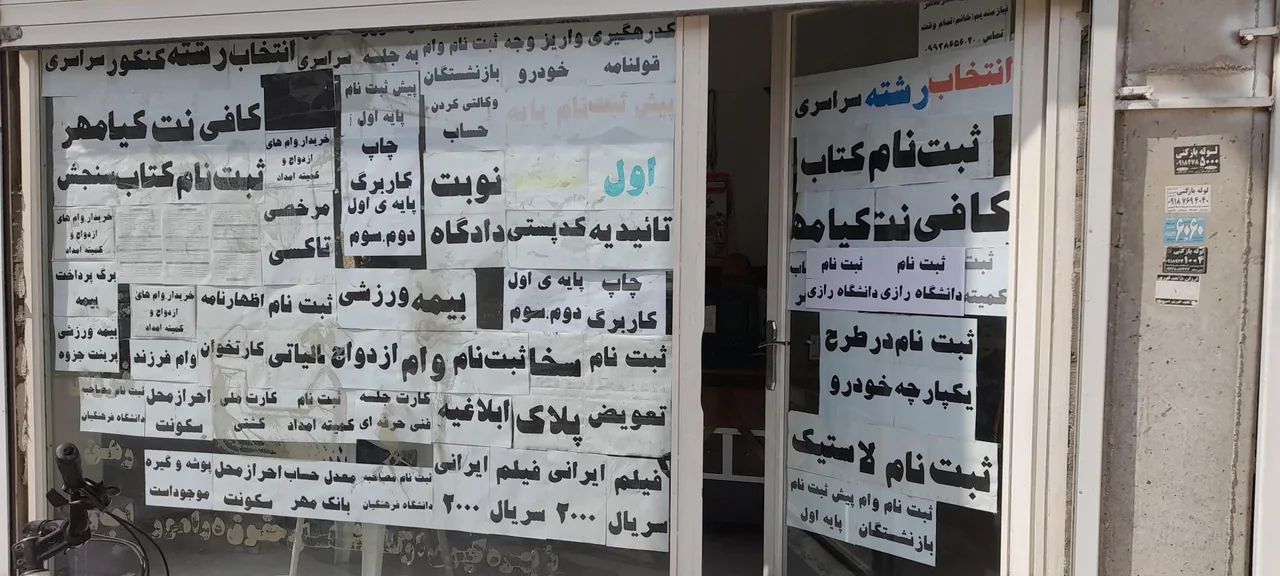 انتخاب رشته کنکور سراسری
انتخاب رشته سراسری
به جلسه
ثبت نام وام
بازنشستگان
کدرهگیری واریز وجه
قولنامه
خودرو
کافی نت کیامهر
خریدار وام های
ازدواج و
کمیته امداد
پیش ثبت نام
پایه اول
چاپ
کاربرگ
پایه ی اول
دوم.سوم
وکالتی کردن
حساب
پیش ثبت نام پایه
اول
ثبت نام کتاب سنجش
مرخصی
تاکسی
نوبت
دادگاه
تائیدیه کدپستی
خریدار وام های
ازدواج و
کمیته امداد
برگ پرداخت
بیمه
خریدار وام های
ازدواج و
کمیته امداد
ثبت نام اظهارنامه
مالیاتی
بیمه ورزشی
پایه ی اول
دوم.سوم
چاپ
کاربرگ
بیمه ورزشی
پرینت جزوه
وام فرزند
کارتخوان
ثبت نام وام ازدواج
ثبت نام سخا
دانشگاه فرهنگیان
احراز محل
سکونت
کارت ملی
کشتی
ثبت نام
کمیته امداد
کارت جلسه
فنی حرفه ای
ابلاغیه
تعویض پلاک
پوشه و گیره
موجوداست
احراز محل
سکونت
معدل حساب
بانک مهر
ثبت نام مصاحبه
دانشگاه فرهنگیان
فیلم ایرانی
سریال ۲۰۰۰
فیلم ایرانی
سریال ۲۰۰۰
نیازمندیم خانم تمام وقت
انتخاب رشته سراسری
ثبت نام کتاب
کافی نت کیامه
ثبت نام
دانشگاه رازی
ثبت نام
دانشگاه رازی
ثبت
کمیته
ثبت نام در طرح
یکپارچه خودرو
ثبت نام لاستیک
ثبت نام وام
بازنشستگان
پیش ثبت نام
پایه اول
لوله بازکنی
لوله بازکنی
۰۹۱۸ ۷۶۹ ۴۰۴۰
۶۰۶۰